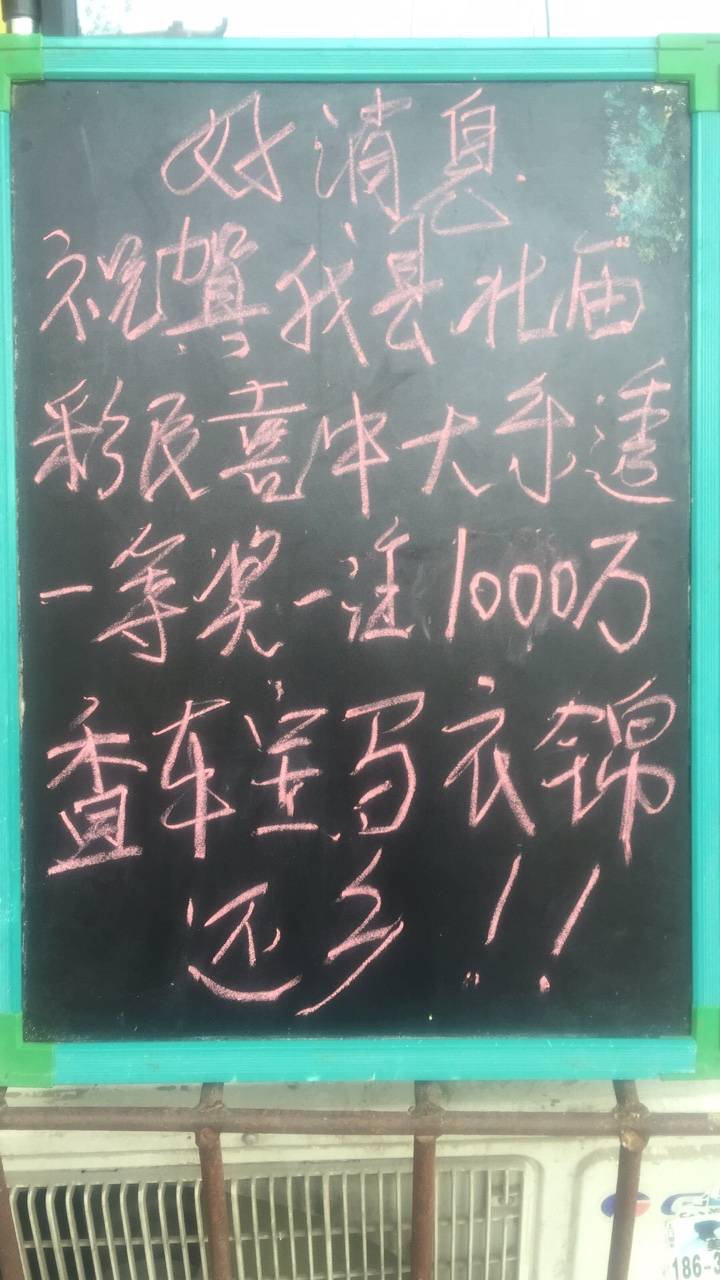 好消息
祝贺我县北庙
彩民喜中大乐透
一等奖一注1000万
香车宝马衣锦
还乡！！
186-3